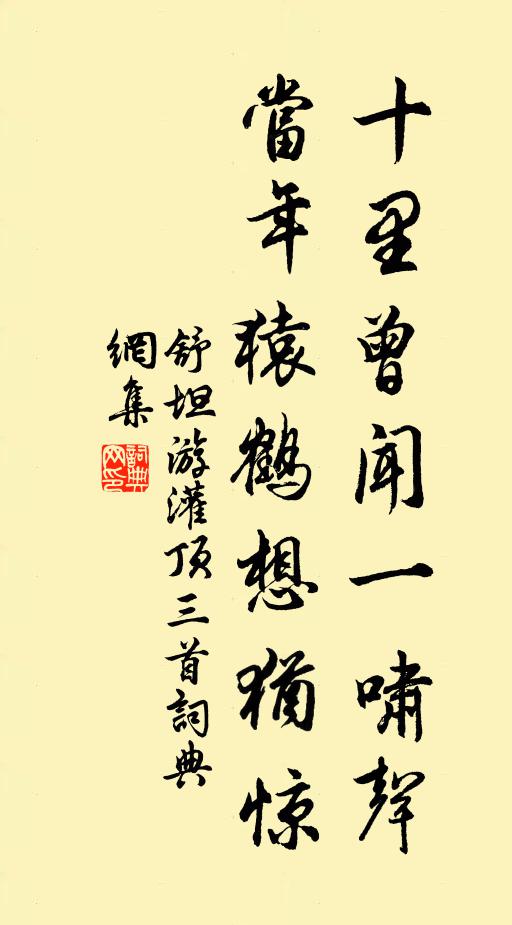 十里曾闻一啸聲
當年猿鶴想猶惊
舒坦游灌顶三首詞典
網集
詞典
网印